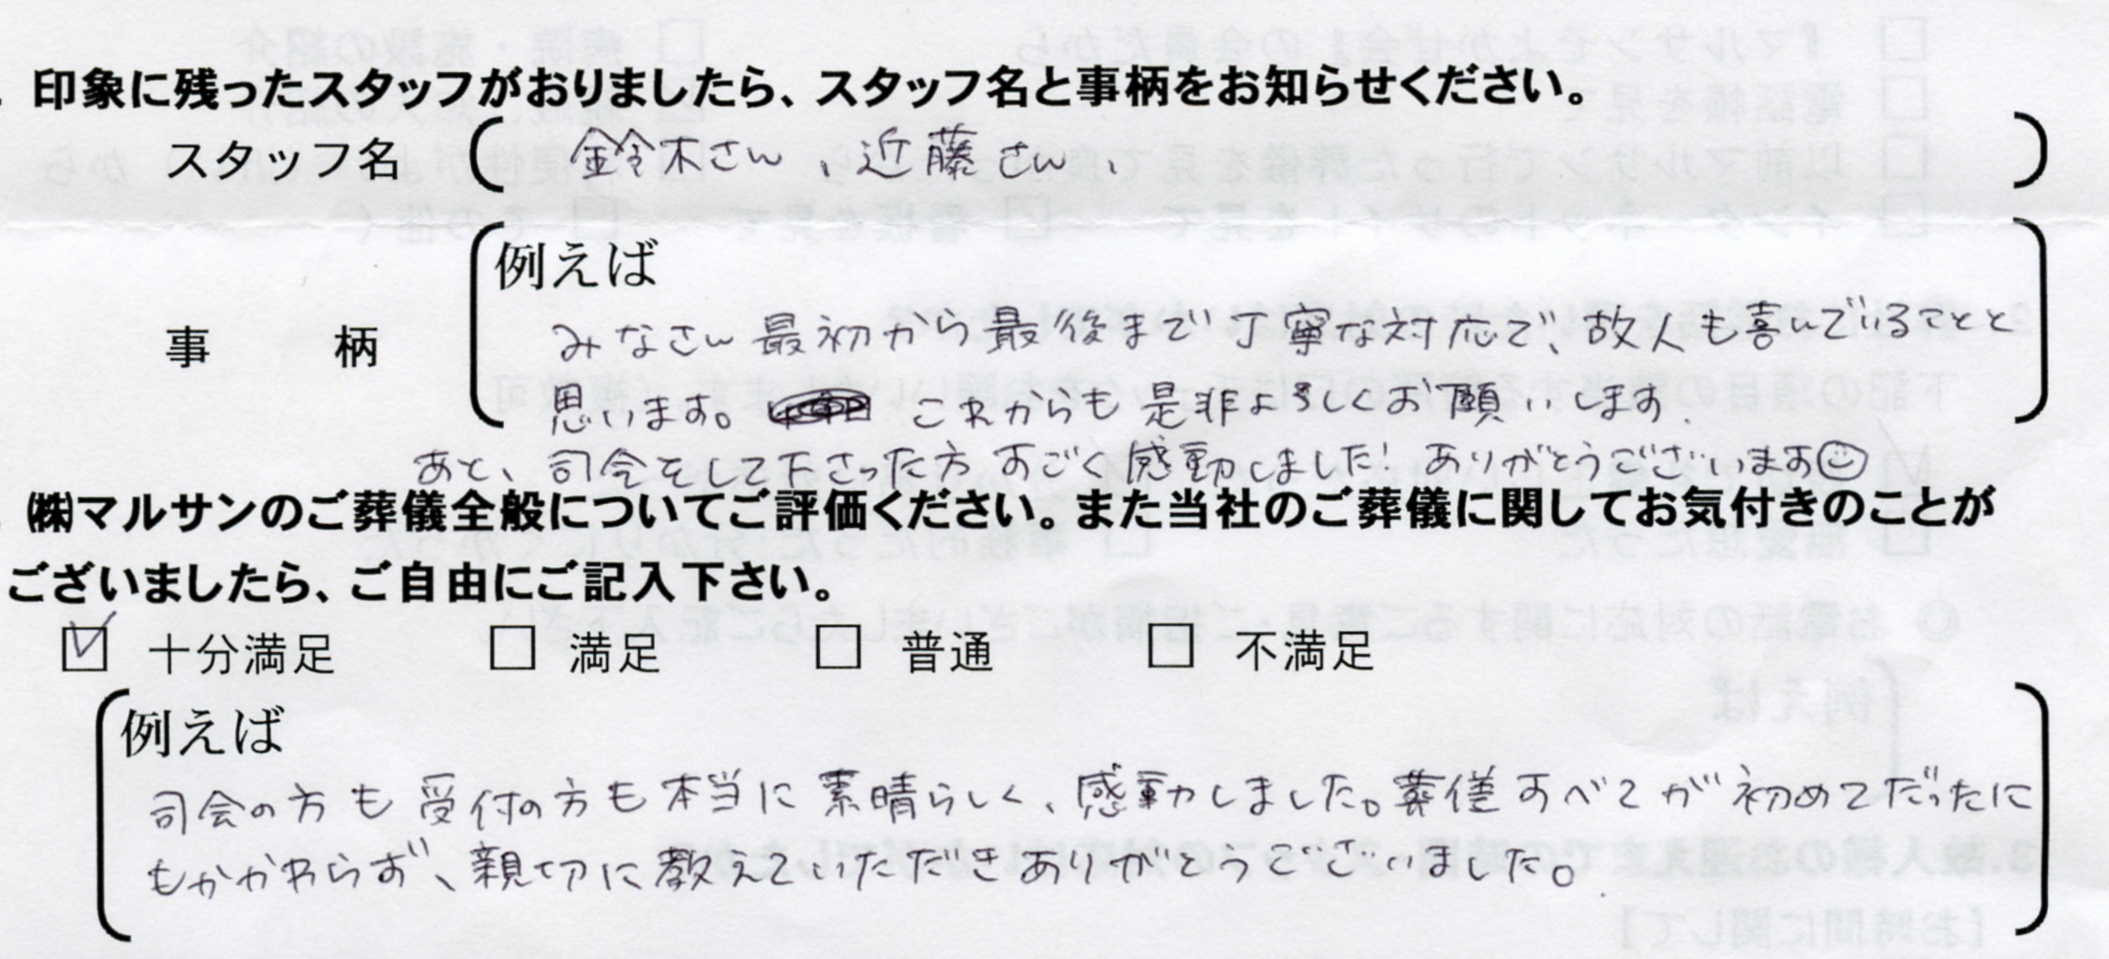 印象に残ったスタッフがおりましたら、スタッフ名と事柄をお知らせください。
スタッフ名 ( 鈴木さん、近藤さん、 )
例えば
事 柄
みなさん最初から最後まで丁寧な対応で、故人も喜んでいることと
思います。 これからも是非よろしくお願いします.
あと、司令をして下さった方すごく感動しました! ありがとうございます☺
㈱マルサンのご葬儀全般についてご評価ください。また当社のご葬儀に関してお気付きのことが
ございましたら、ご自由にご記入下さい。
☑ 十分満足 □ 満足 □ 普通 □ 不満足
例えば
司会の方も受付の方も本当に素晴らしく、感動しました。葬儀すべてが初めてだったに
もかかわらず、親切に教えていただきありがとうございました。